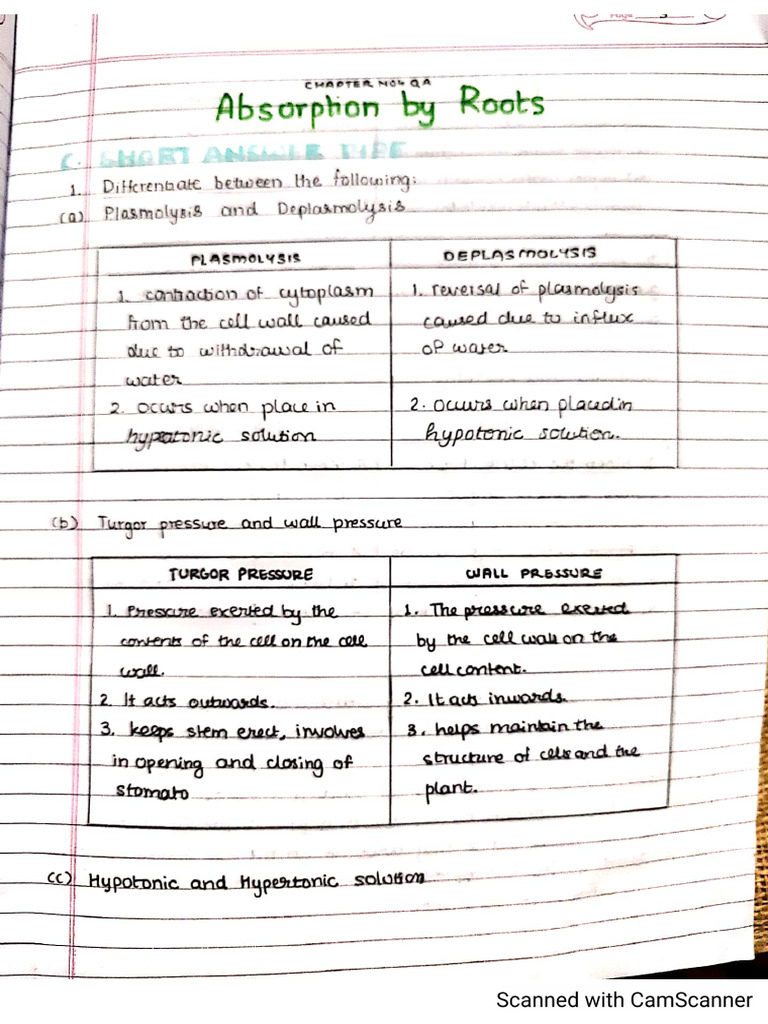 Page 3
CHAPTER NO4 QA
Absorption by Roots
C. SHORT ANSWER TYPE
1. Differentiate between the following:
(a) Plasmolysis and Deplasmolysis
PLASMOLYSIS
1. contraction of cytoplasm
from the cell wall caused
due to withdrawal of
water
2. occurs when place in
solution
DEPLASMOLYSIS
1. reversal of plasmolysis
caused due to influx
of water
2. occurs when placed in
hypotonic solution.
(b) Turgor pressure and wall pressure
TURGOR PRESSURE
1. Pressure exerted by the
contents of the cell on the cell
wall.
2. It acts outwards.
3. keeps stem erect, involves
in opening and closing of
stomato
WALL PRESSURE
1. The pressure exerted
by the cell wall on the
cell content.
2. It acts inwards.
3. helps maintain the
structure of cells and the
plant.
(c) Hypotonic and Hypertonic solution
Scanned with CamScanner